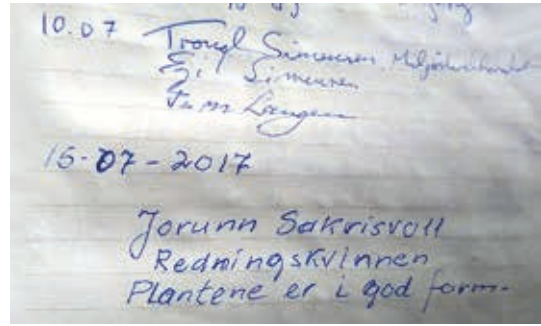 10.07 Trond Simensen, Miljødirektoratet
Simensen
15-07-2017
Jorunn Sakrisvoll
Redningskvinnen
Plantene er i god form.